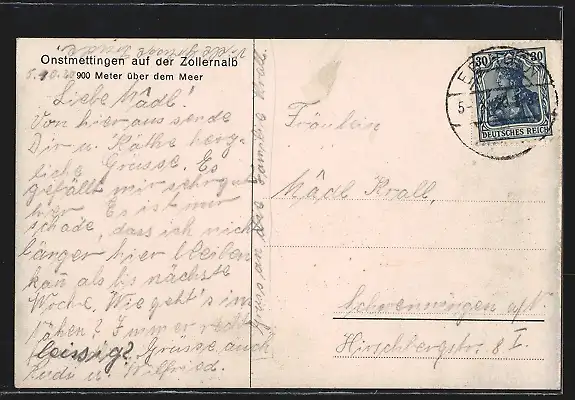 Onstmettingen auf der Zollernalb
900 Meter über dem Meer
5.10.20
Liebe Mädl!
Von hier aus sende
Dir u. Käthe herz-
liche Grüsse. Es
gefällt mir sehr gut
hier. Es ist nur
schade, dass ich nicht
länger hier bleiben
kan als bis nächste
Woche. Wie geht's im
Nähen? Immer recht
fleissig? Grüsse auch
und u. Wilfried.
Gruss an die Familie Krall.
30 30
DEUTSCHES REICH
Fräulein
Mädl Krall,
Schwenningen a/N
Hirschbergstr. 8 I.